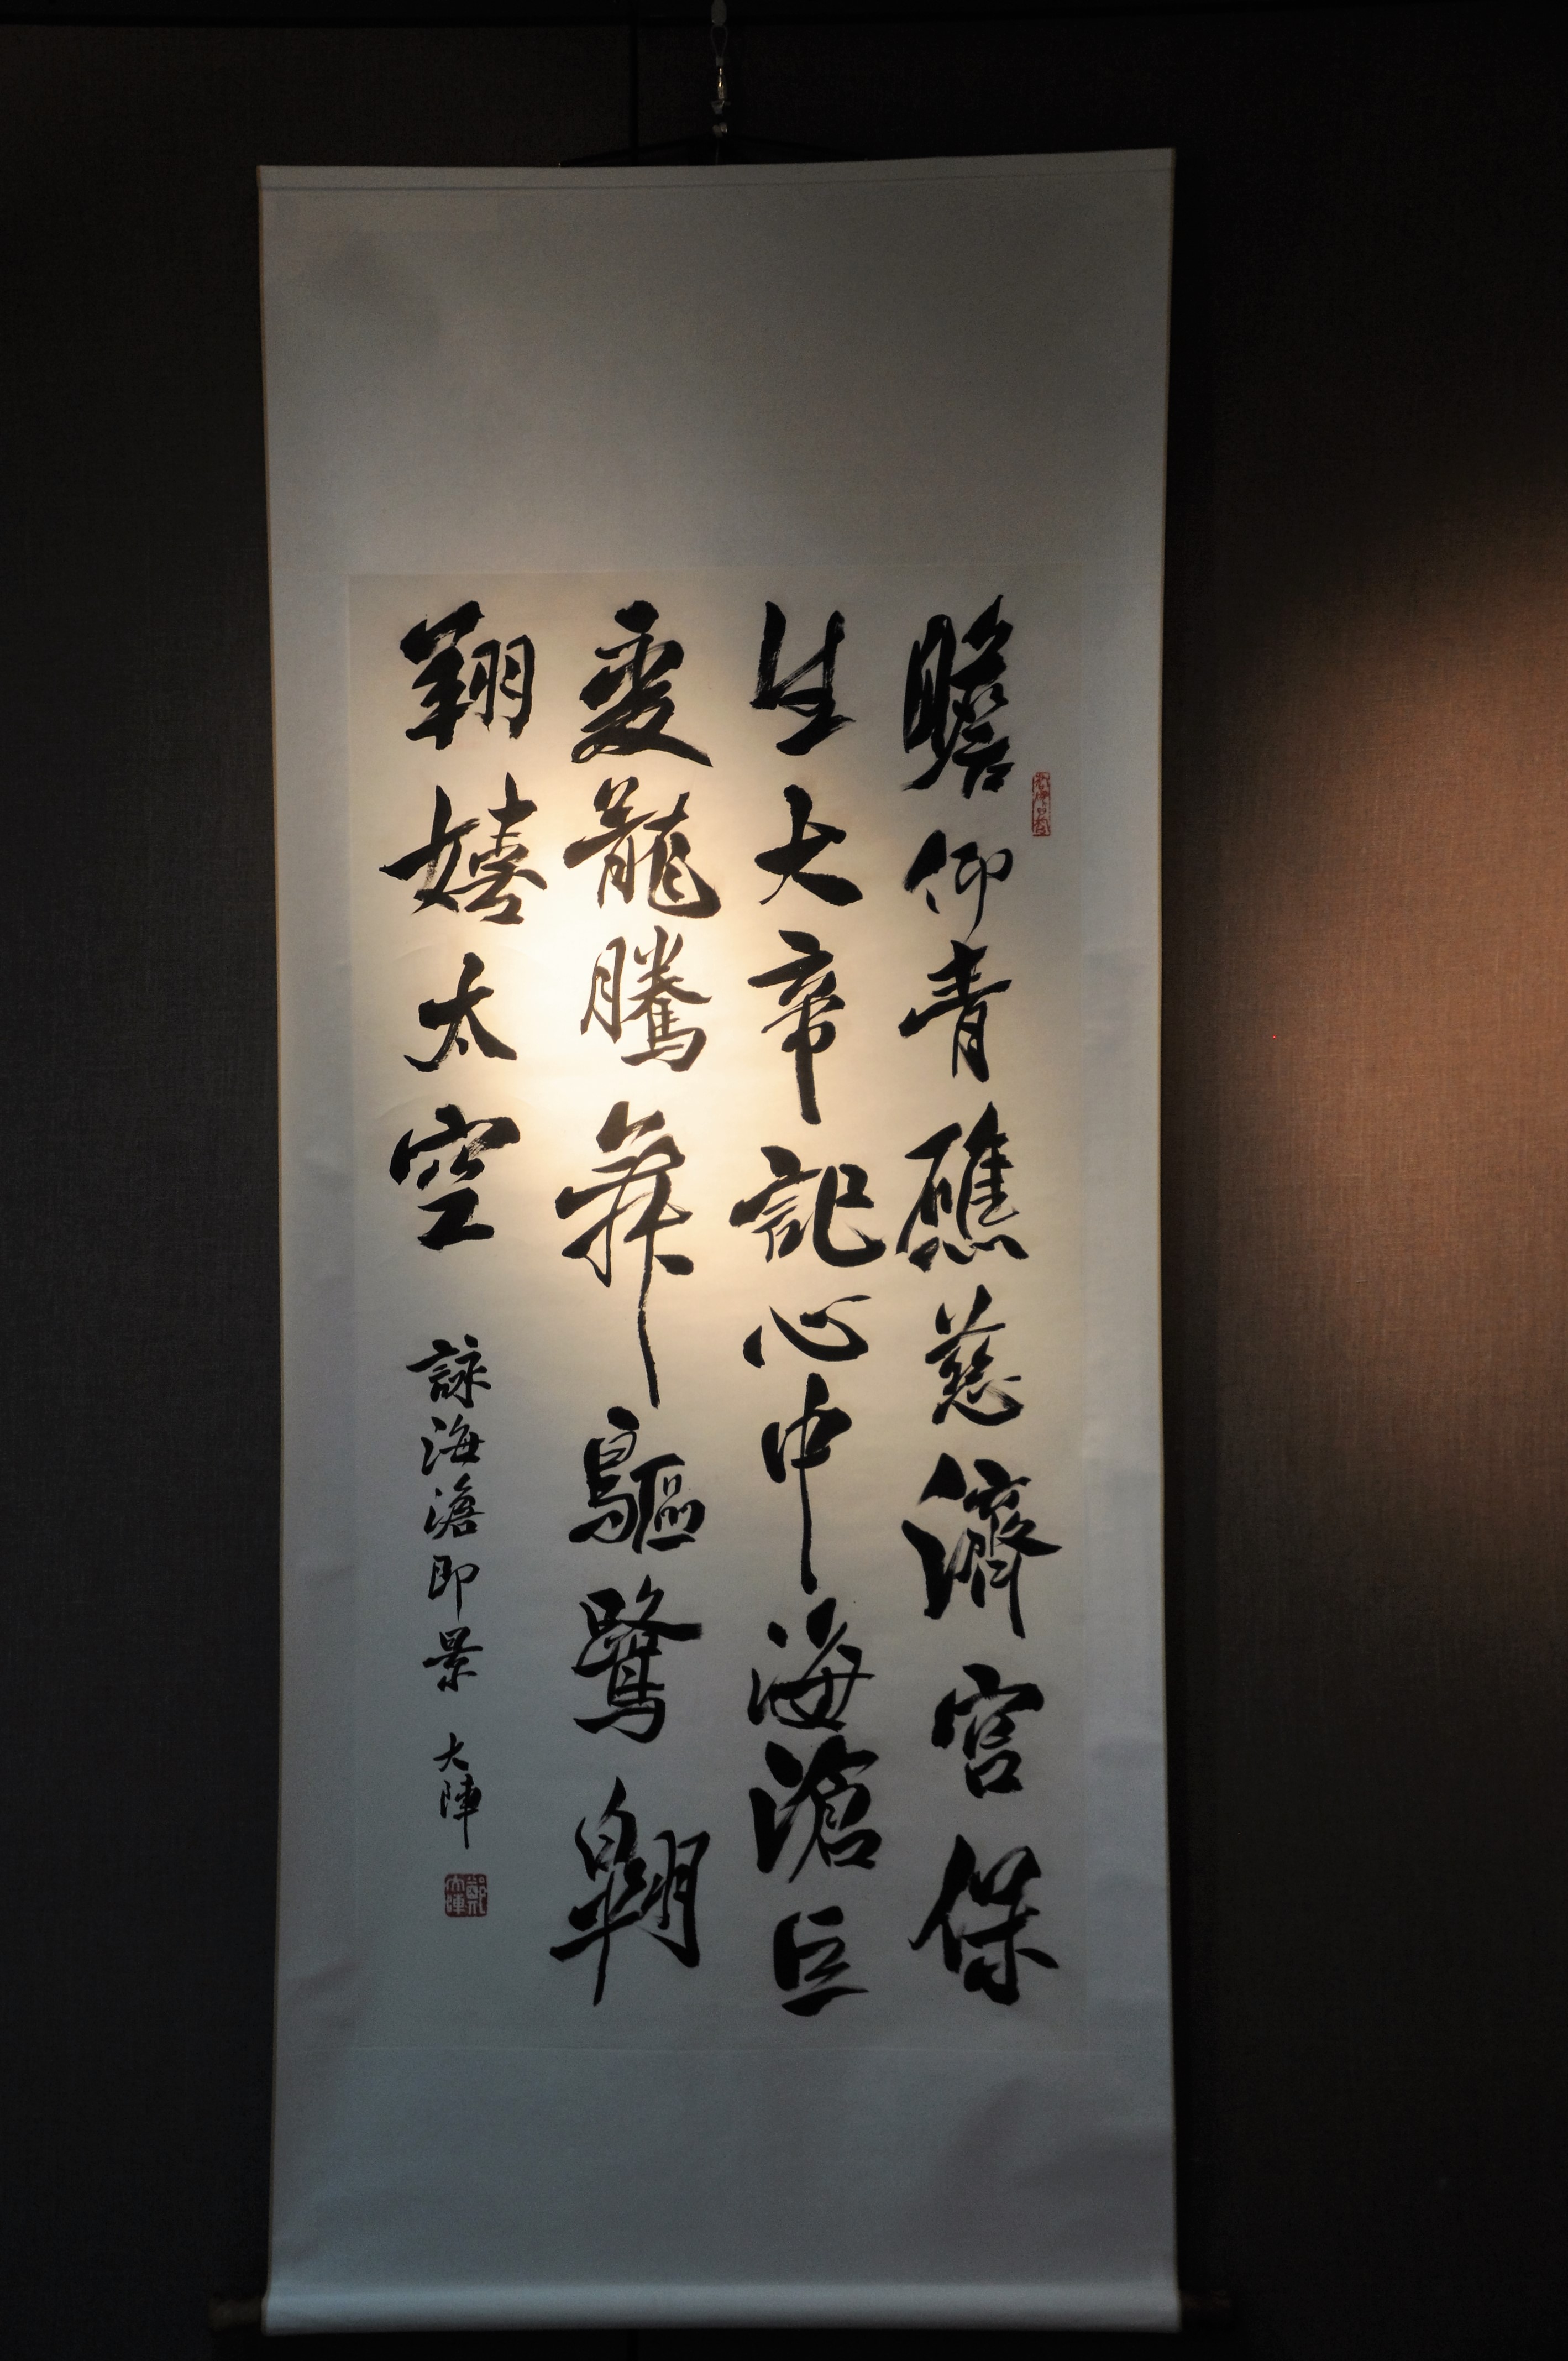 瞻仰青礁慈濟宮保
生大帝記心中海滄巨
變龍騰舞驅鷺翱
翔嬉太空
詠海滄即景 大陣
鄭大陣